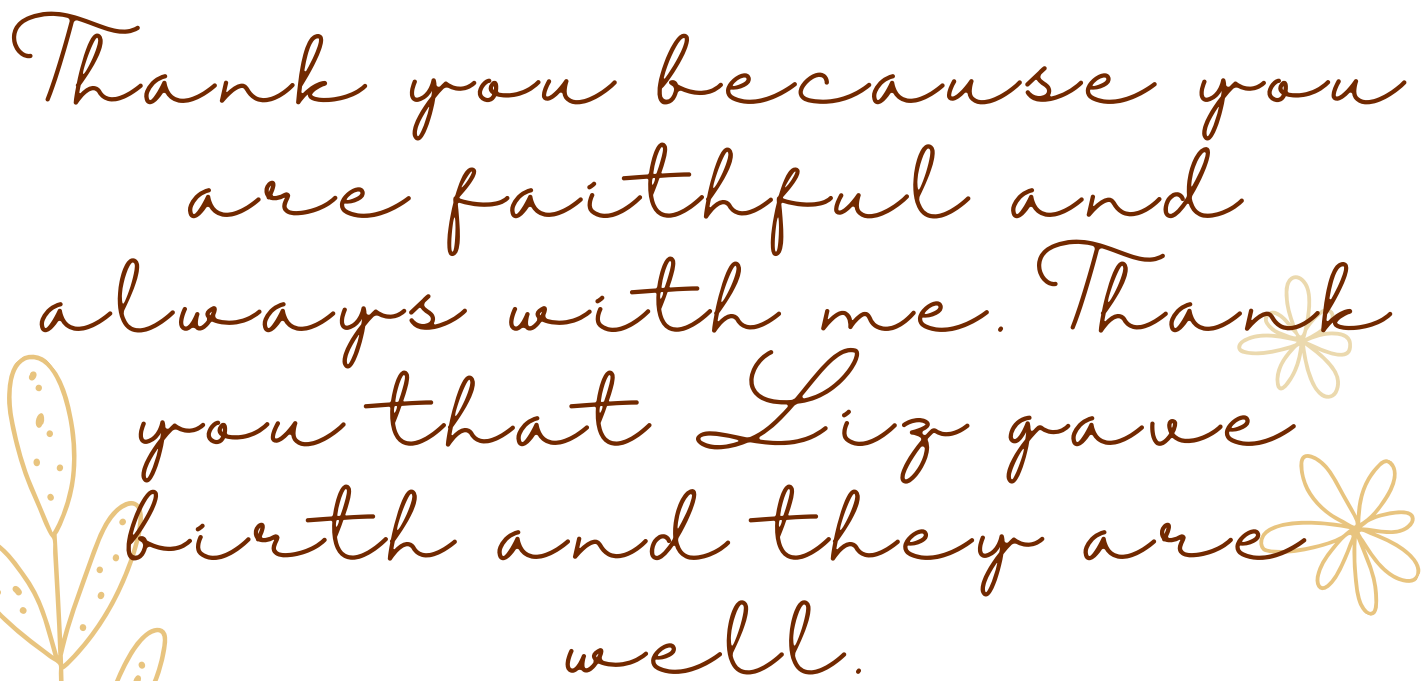 Thank you because you
are faithful and
always with me. Thank
you that Liz gave
birth and they are
well.